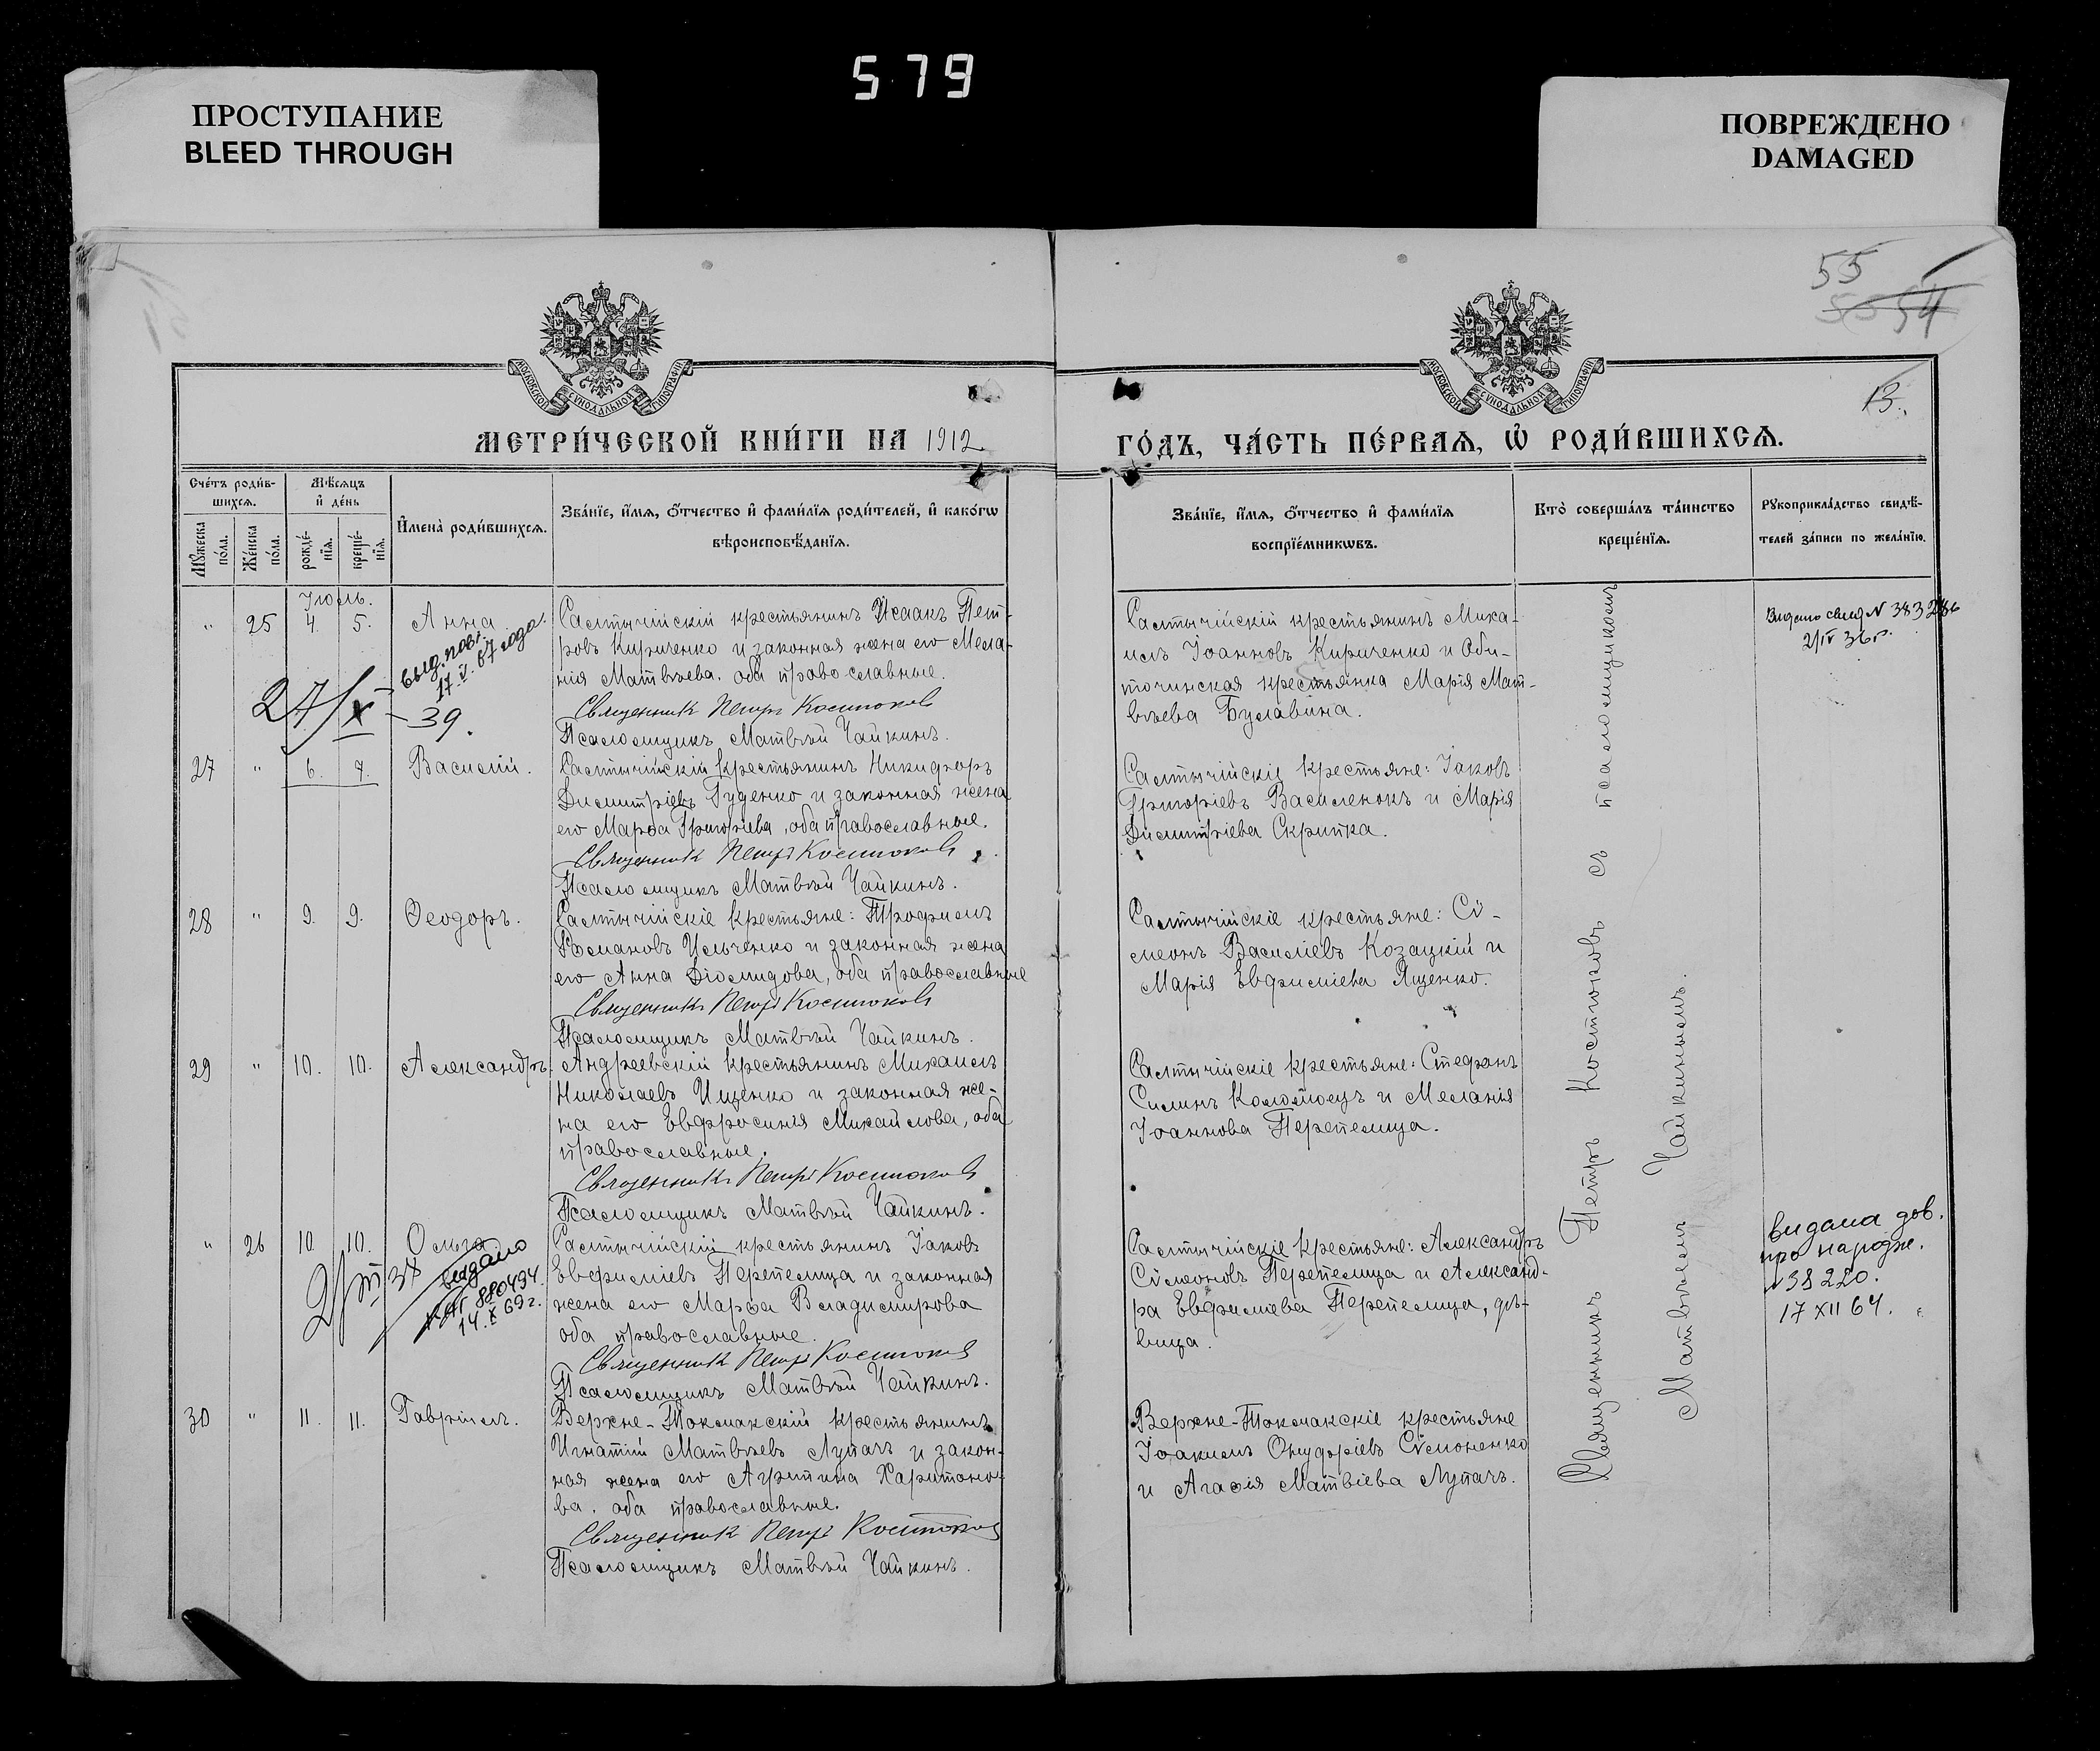 579
ПРОСТУПАНИЕ
BLEED THROUGH
ПОВРЕЖДЕНО
DAMAGED
55
54
13.
МОСКОВСКОЙ СѴНОДАЛЬНОЙ ТИПОГРАФІИ
МОСКОВСКОЙ СѴНОДАЛЬНОЙ ТИПОГРАФІИ
МЕТРИ́ЧЕСКОЙ КНИ́ГИ НА 1912 ГО́ДЪ, ЧА́СТЬ ПЕ́РВАѦ, Ѿ РОДИ́ВШИХСѦ.
Сче́тъ роди́в-
шихсѧ.
Мѣ́сѧцъ
и҆ де́нь
Мꙋ́жеска по́ла.
Же́нска по́ла.
рожде́-
нїѧ.
креще́-
нїѧ.
И҆мена̀ роди́вшихсѧ.
Зва́нїе, и҆́мѧ, ѻ҆́тчество и҆ фами́лїѧ роди́телей, и҆ како́гѡ
вѣроисповѣ́данїѧ.
Зва́нїе, и҆́мѧ, ѻ҆́тчество и҆ фами́лїѧ
воспрїе́мникѡвъ.
Кто̀ соверша́лъ та́инство
креще́нїѧ.
Рꙋкоприкла́дство свидѣ́-
телей за́писи по жела́нїю.
Іюль.
" 25 4. 5. Анна
выд. пов.
17.V.67 года.
27/X – 39.
Салтычійскій крестьянинъ Исаакъ Пет-
ровъ Кириченко и законная жена его Мела-
нія Матвѣева, оба православные.
Священникъ Петръ Костюковъ
Псаломщикъ Матвѣй Чайкинъ.
Салтычійскій крестьянинъ Миха-
илъ Іоанновъ Кириченко и Оби-
точинская крестьянка Марія Мат-
вѣева Булавина.
Видано свид N 383286
2/IV 36 г.
27 " 6. 7. Василій.
Салтычійскій крестьянинъ Никифоръ
Димитріевъ Гуденко и законная жена
его Марѳа Григоріева, оба православные.
Священникъ Петръ Костюковъ
Псаломщикъ Матвѣй Чайкинъ.
Салтычійскіе крестьяне: Іаковъ
Григоріевъ Василенокъ и Марія
Димитріева Скрипка.
28 " 9. 9. Ѳеодоръ.
Салтычійскіе крестьяне: Трофимъ
Романовъ Ильченко и законная жена
его Анна Діомидова, оба православные
Священникъ Петръ Костюковъ
Псаломщикъ Матвѣй Чайкинъ.
Салтычійскіе крестьяне: Сѵ-
меонъ Василіевъ Козацкій и
Марія Евфиміева Ященко.
29 " 10. 10. Александръ.
Андреевскій крестьянинъ Михаилъ
Николаевъ Ищенко и законная же-
на его Евфросинія Михайлова, оба
православные.
Священникъ Петръ Костюковъ
Псаломщикъ Матвѣй Чайкинъ.
Салтычійскіе крестьяне: Стефанъ
Силинъ Коломоецъ и Меланія
Іоаннова Перепелица.
" 26 10 10. Ольга
выдано
880494.
14.X 69 г.
Салтычійскій крестьянинъ Іаковъ
Евфиміевъ Перепелица и законная
жена его Марѳа Владимирова
оба православные.
Священникъ Петръ Костюковъ
Псаломщикъ Матвѣй Чайкинъ.
Салтычійскіе крестьяне: Александръ
Сѵмеоновъ Перепелица и Александ-
ра Евфиміева Перепелица, дѣ-
вица.
видана дов.
про народж.
N 38220.
17 XII 64.
30 " 11. 11. Гавріилъ.
Верхне-Токмакскій крестьянинъ
Игнатій Матвѣевъ Лупачъ и закон-
ная жена его Агрипина Харитоно-
ва, оба православные.
Священникъ Петръ Костюковъ
Псаломщикъ Матвѣй Чайкинъ.
Верхне-Токмакскіе крестьяне
Іоакимъ Онуфріевъ Сѵмоненко
и Агаѳія Матвіева Лупачъ.
Священникъ Петръ Костюковъ съ псаломщикомъ
Матвѣемъ Чайкинымъ.